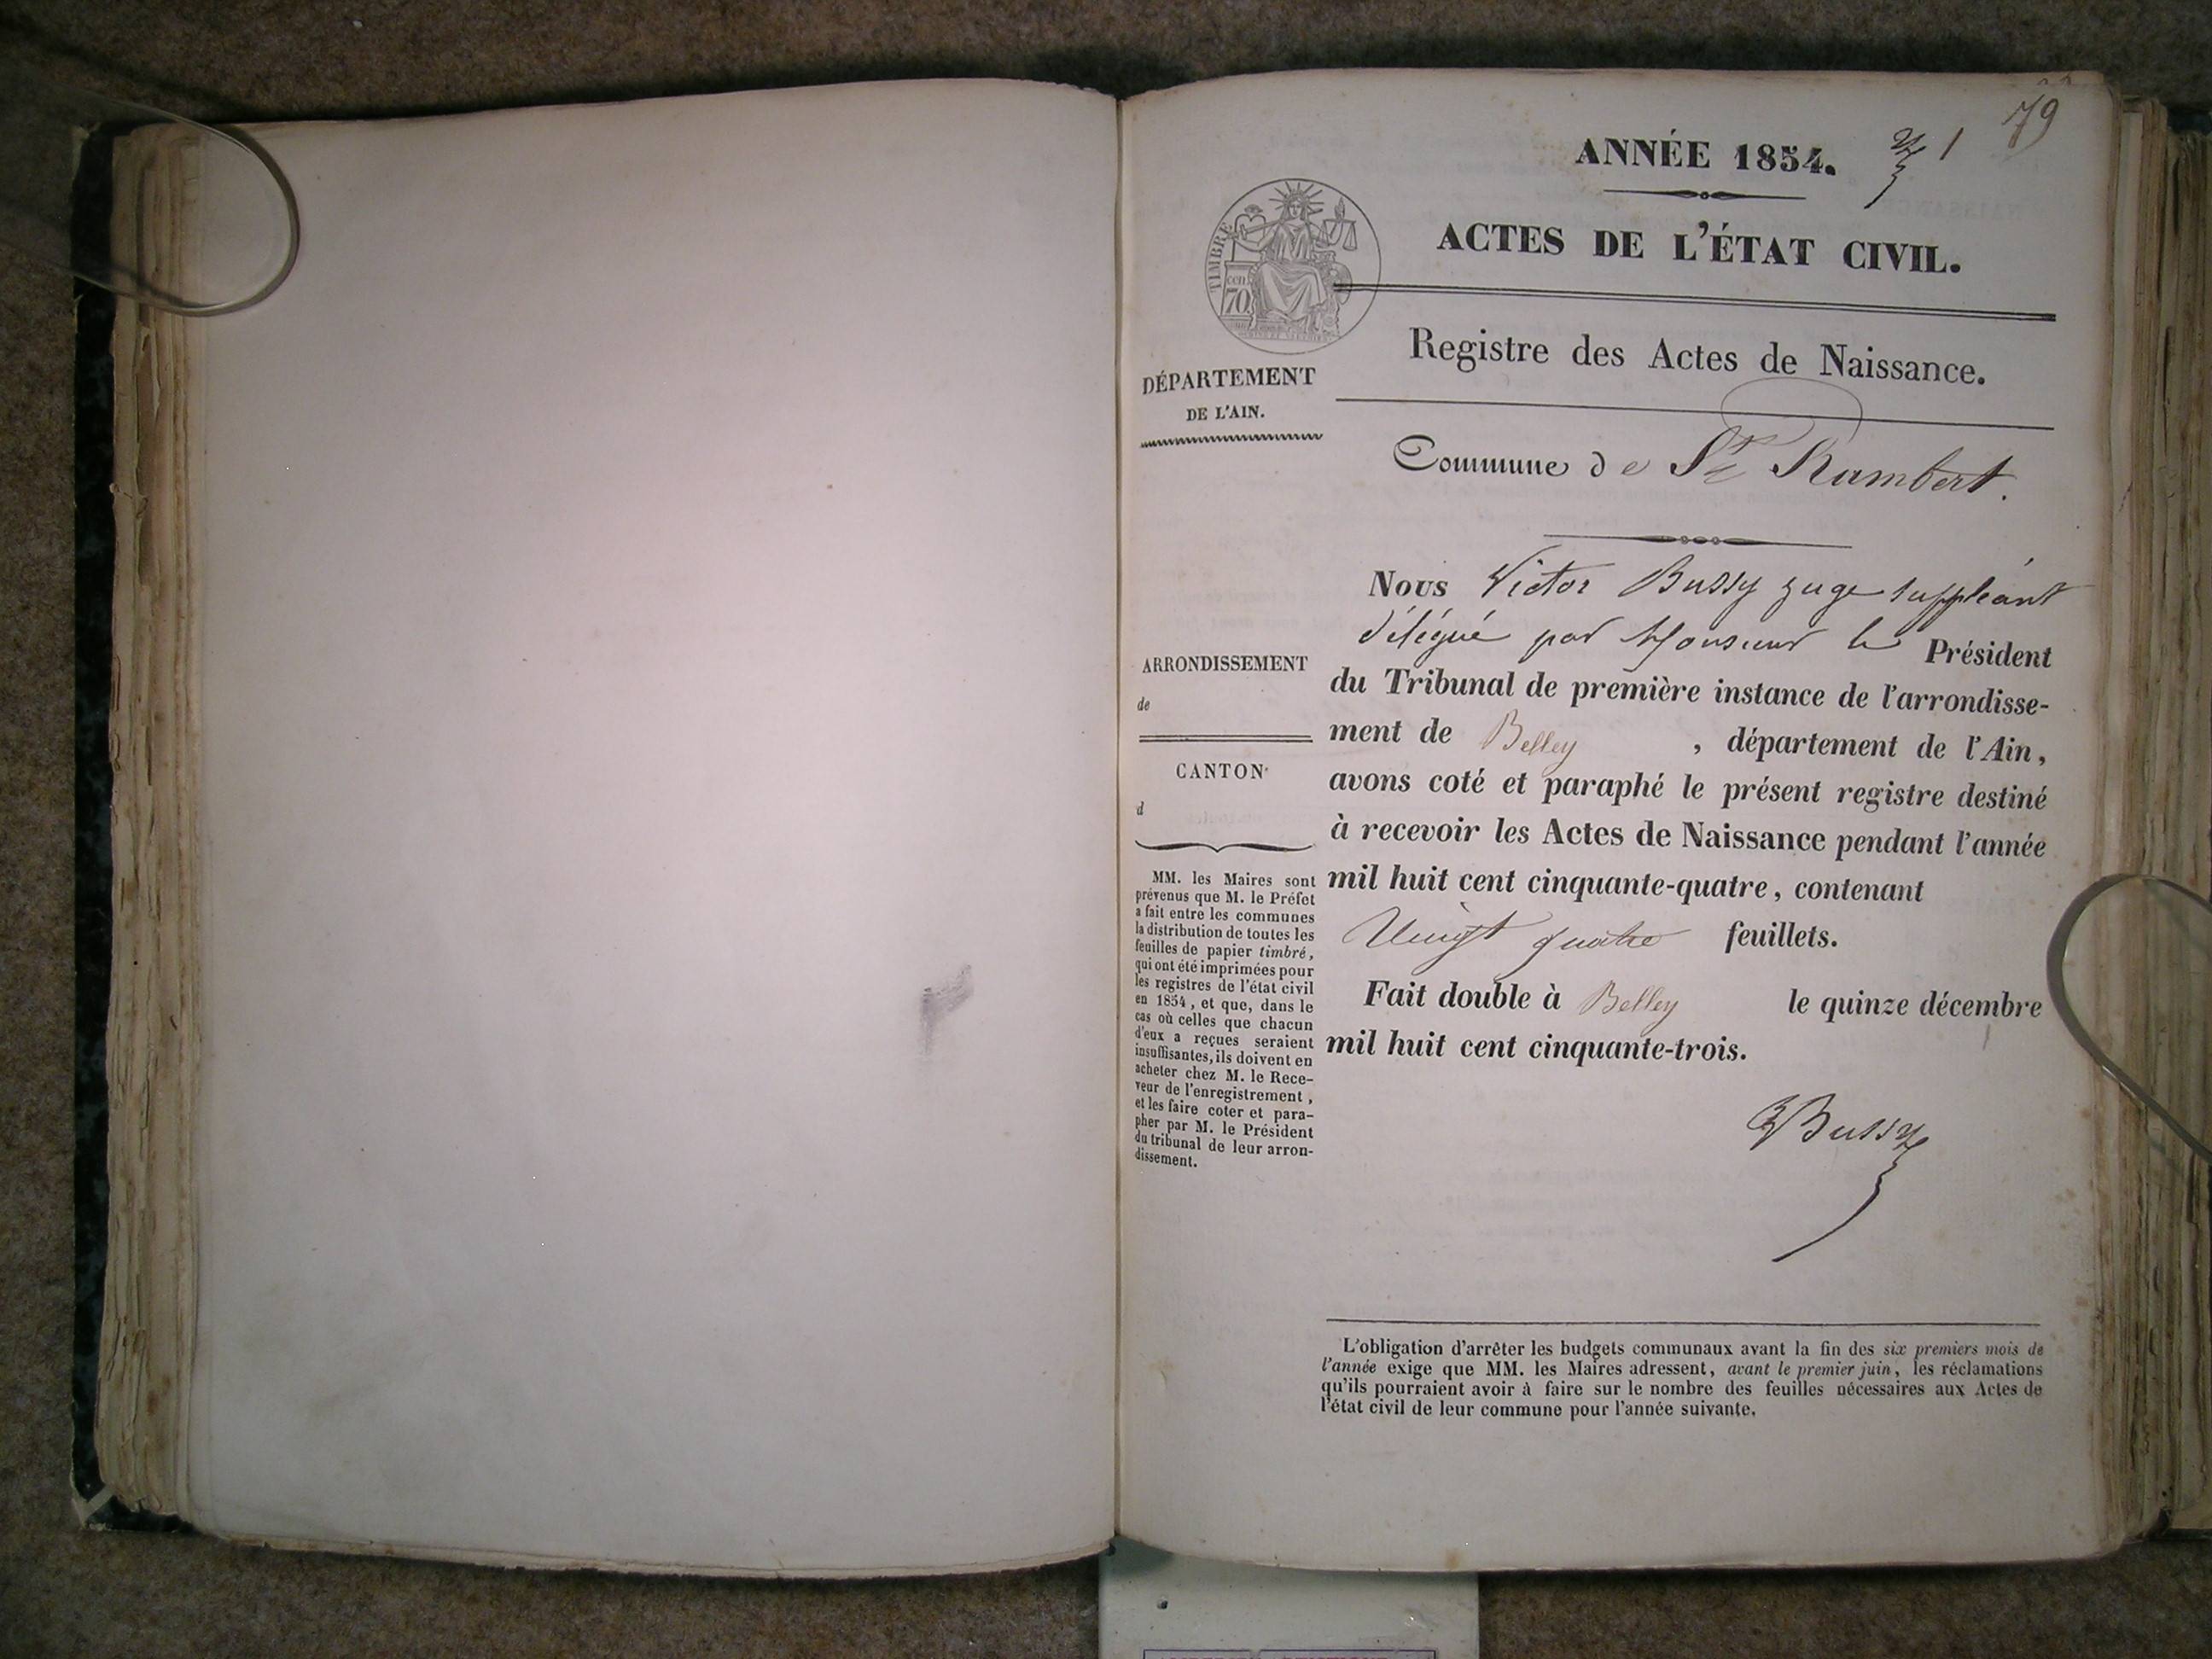 79
ANNÉE 1854.
1
ACTES DE L'ÉTAT CIVIL.
TIMBRE
cen
70
Registre des Actes de Naissance.
DÉPARTEMENT
DE L'AIN.
Commune de St Rambert.
Nous Victor Bussy juge suppléant
délégué par Monsieur le Président
du Tribunal de première instance de l'arrondisse-
ment de Belley , département de l'Ain,
avons coté et paraphé le présent registre destiné
à recevoir les Actes de Naissance pendant l'année
mil huit cent cinquante-quatre, contenant
Vingt quatre feuillets.
Fait double à Belley le quinze décembre
mil huit cent cinquante-trois.
Bussy
ARRONDISSEMENT
de
CANTON
d
MM. les Maires sont
prévenus que M. le Préfet
a fait entre les communes
la distribution de toutes les
feuilles de papier timbré,
qui ont été imprimées pour
les registres de l'état civil
en 1854, et que, dans le
cas où celles que chacun
d'eux a reçues seraient
insuffisantes, ils doivent en
acheter chez M. le Rece-
veur de l'enregistrement,
et les faire coter et para-
pher par M. le Président
du tribunal de leur arron-
dissement.
L'obligation d'arrêter les budgets communaux avant la fin des six premiers mois de
l'année exige que MM. les Maires adressent, avant le premier juin, les réclamations
qu'ils pourraient avoir à faire sur le nombre des feuilles nécessaires aux Actes de
l'état civil de leur commune pour l'année suivante.